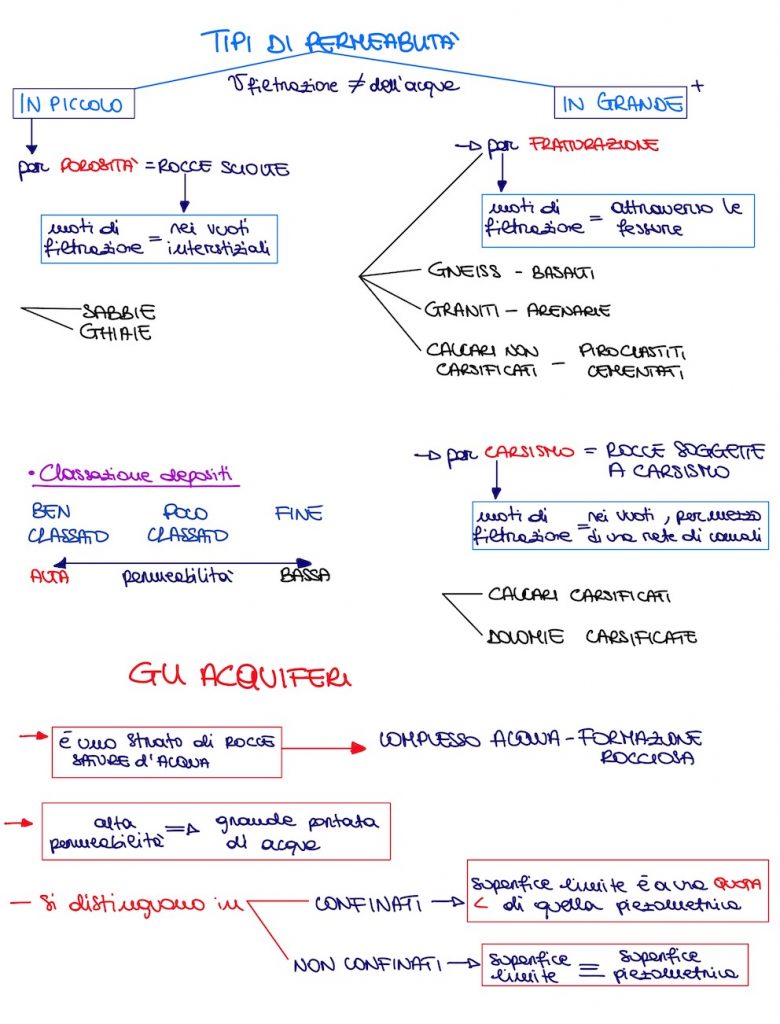 TIPI DI PERMEABILITÀ
V filtrazione ≠ dell'acqua
IN PICCOLO
IN GRANDE +
→ per FRATTURAZIONE
per POROSITÀ = ROCCE SCIOLTE
moti di filtrazione = attraverso le fessure
moti di filtrazione = nei vuoti interstiziali
GNEISS - BASALTI
SABBIE
GHIAIE
GRANITI - ARENARIE
CALCARI NON CARSIFICATI - PIROCLASTITI CEMENTATI
→ per CARSISMO = ROCCE SOGGETTE A CARSISMO
• Classazione depositi
BEN CLASSATO
POCO CLASSATO
FINE
moti di filtrazione = nei vuoti, per mezzo di una rete di canali
ALTA permeabilità BASSA
CALCARI CARSIFICATI
DOLOMIE CARSIFICATE
GLI ACQUIFERI
→ è uno strato di ROCCE SATURE d'ACQUA → COMPLESSO ACQUA - FORMAZIONE ROCCIOSA
→ alta permeabilità ⇒ grande portata di acqua
- Si distinguono in
CONFINATI → superfice limite è a una QUOTA < di quella piezometrica
NON CONFINATI → superfice limite ≡ superfice piezometrica